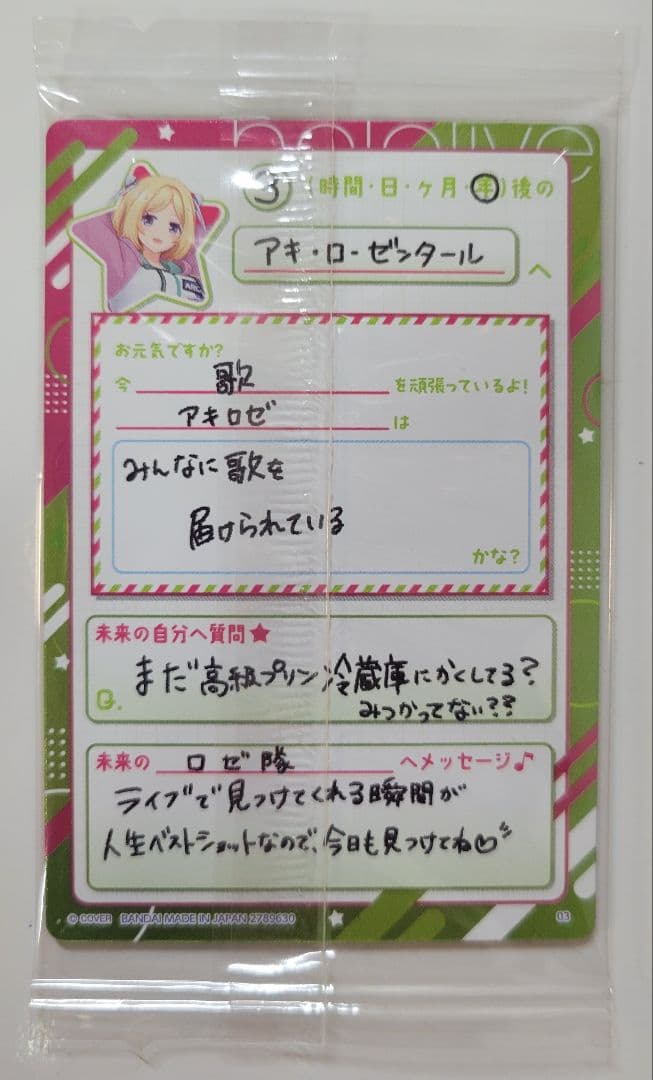 hololive
3（時間・日・ヶ月・年）後の
アキ・ローゼンタール へ
お元気ですか?
今 歌 を頑張っているよ!
アキロゼ は
みんなに歌を
届けられている
かな?
未来の自分へ質問★
Q. まだ高級プリン冷蔵庫にかくしてる?
みつかってない??
未来の ロゼ隊 へメッセージ♪
ライブで見つけてくれる瞬間が
人生ベストショットなので、今日も見つけてね♡
© COVER BANDAI MADE IN JAPAN 2789630
03